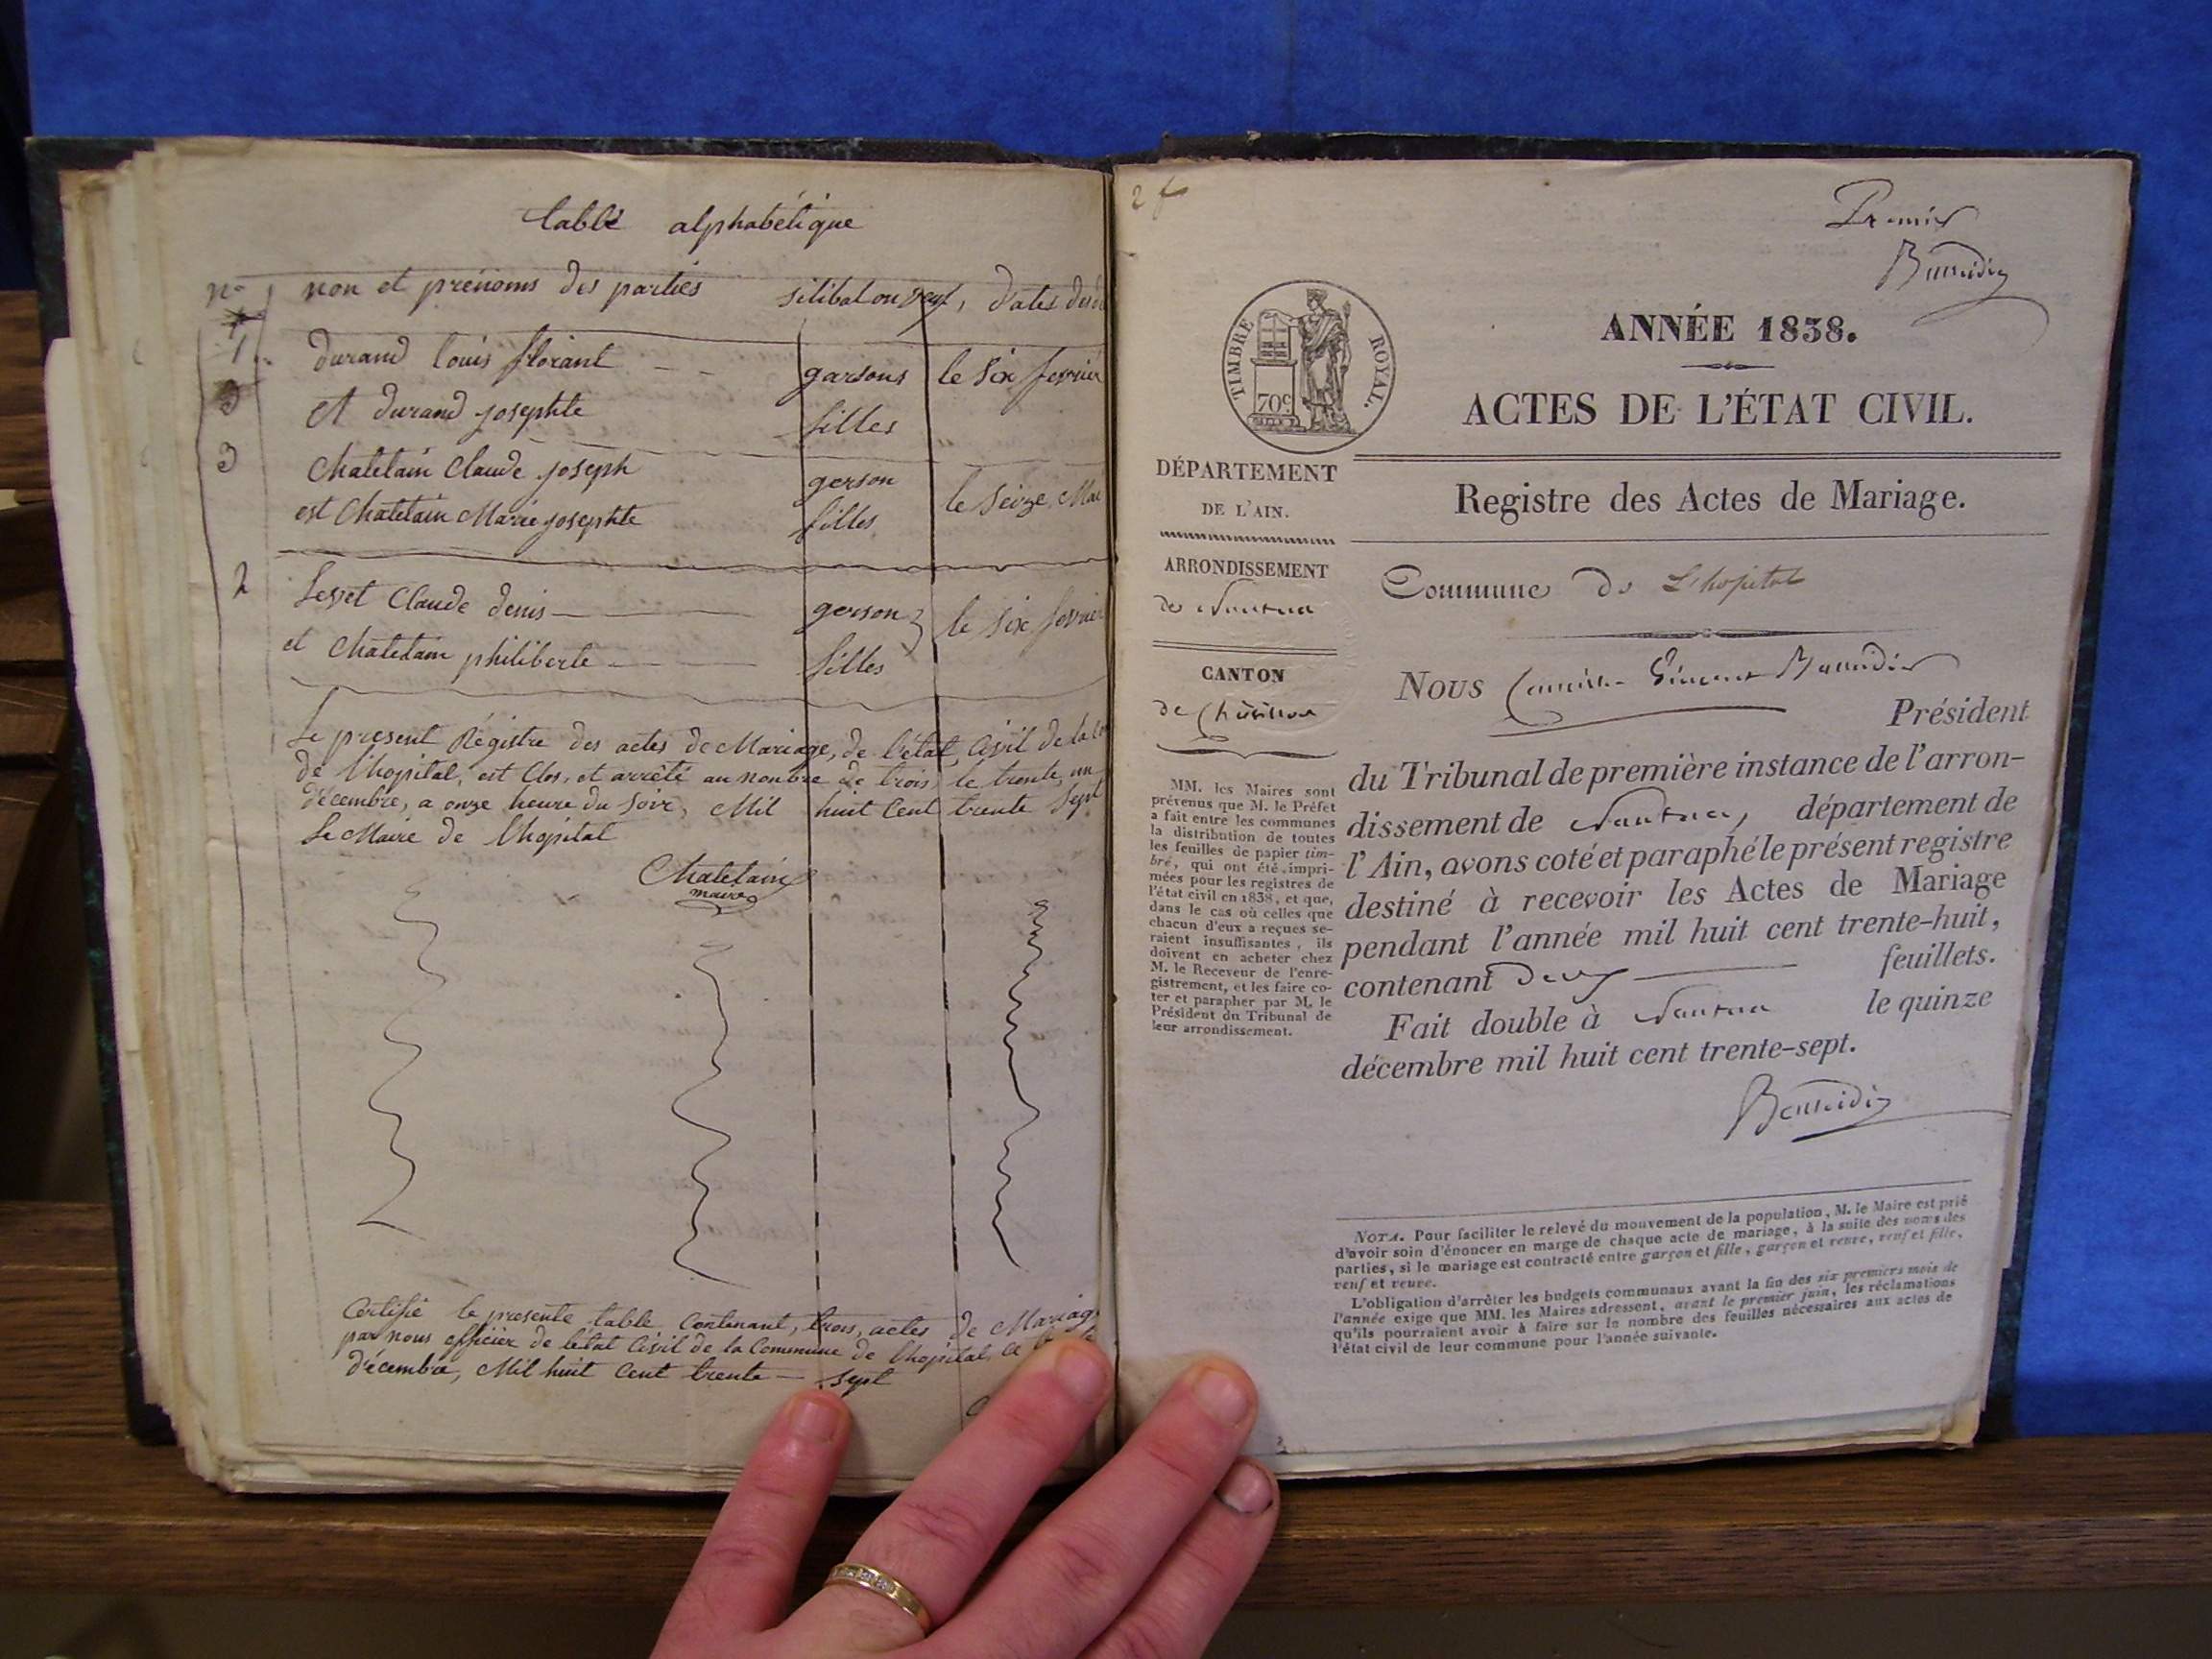 table alphabétique
n° non et prénoms des parties silibat ou veuf, dates des
1 durand louis florant garsons le six fevrier
et durand josephte filles
3 Chatelain Claude joseph gerson le seize Mai
est Chatelain Marie josephte filles
2 Levet Claude denis gerson le six fevrier
et Chatelain philiberte filles
Le present Régistre des actes de Mariage, de l'état, Civil de la
de l'hopital, est Clos, et arrêté au nonbre de trois, le trente, un
décembre, a onze heure du soir, Mil huit Cent trente Sept
Le Maire de l'hopital
Chatelain
maire
Certifié le presente table Contenant, trois, actes de Mariage
par nous officier de l'état Civil de la Commune de l'hopital, ce
décembre, Mil huit Cent trente – sept
2 f
Premier
TIMBRE ROYAL.
70 c
ANNÉE 1838.
ACTES DE L'ÉTAT CIVIL.
DÉPARTEMENT
DE L'AIN.
Registre des Actes de Mariage.
ARRONDISSEMENT
de Nantua
Commune de L'hopital
CANTON
de Châtillon
Nous
Président
du Tribunal de première instance de l'arron-
dissement de Nantua, département de
l'Ain, avons coté et paraphé le présent registre
destiné à recevoir les Actes de Mariage
pendant l'année mil huit cent trente-huit,
contenant deux feuillets.
Fait double à Nantua le quinze
décembre mil huit cent trente-sept.
MM. les Maires sont
prévenus que M. le Préfet
a fait entre les communes
la distribution de toutes
les feuilles de papier tim-
bré, qui ont été impri-
mées pour les registres de
l'état civil en 1838, et que,
dans le cas où celles que
chacun d'eux a reçues se-
raient insuffisantes, ils
doivent en acheter chez
M. le Receveur de l'enre-
gistrement, et les faire co-
ter et parapher par M. le
Président du Tribunal de
leur arrondissement.
NOTA. Pour faciliter le relevé du mouvement de la population, M. le Maire est prié
d'avoir soin d'énoncer en marge de chaque acte de mariage, à la suite des noms des
parties, si le mariage est contracté entre garçon et fille, garçon et veuve, veuf et fille,
veuf et veuve.
L'obligation d'arrêter les budgets communaux avant la fin des six premiers mois de
l'année exige que MM. les Maires adressent, avant le premier juin, les réclamations
qu'ils pourraient avoir à faire sur le nombre des feuilles nécessaires aux actes de
l'état civil de leur commune pour l'année suivante.